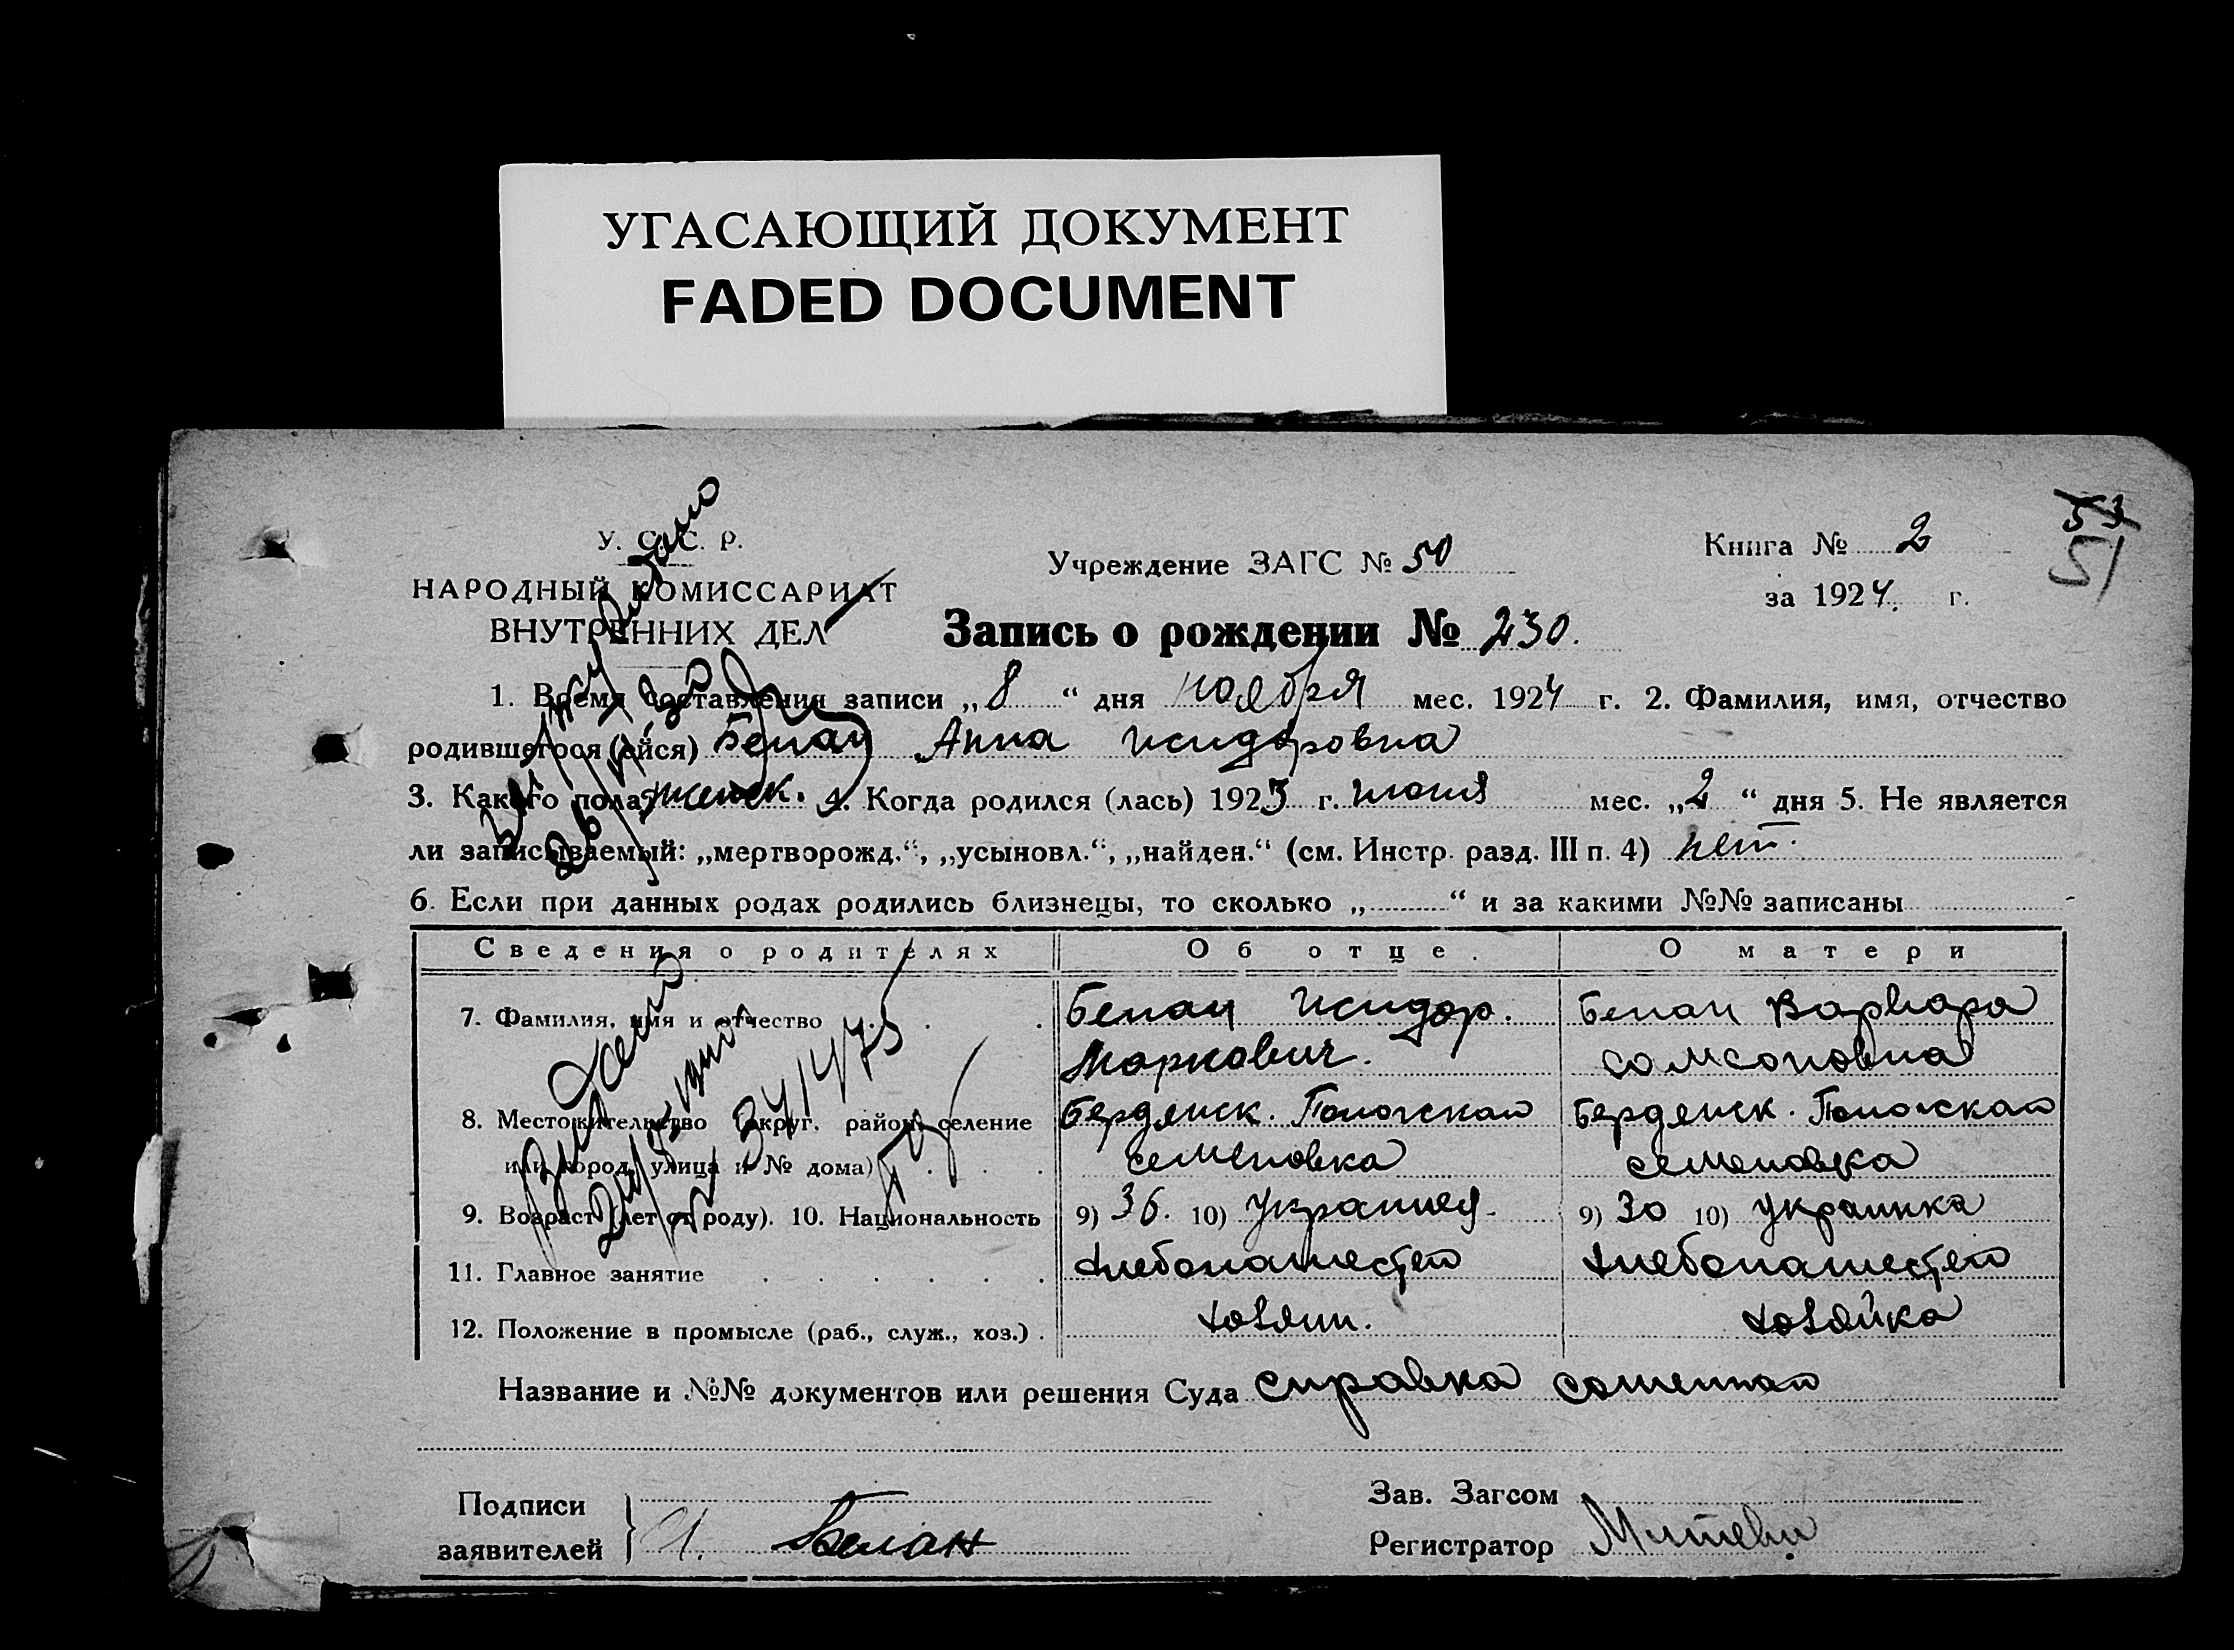 УГАСАЮЩИЙ ДОКУМЕНТ
FADED DOCUMENT
53
51
У. С. С. Р.
НАРОДНЫЙ КОМИССАРИАТ
ВНУТРЕННИХ ДЕЛ
Учреждение ЗАГС № 50
Книга № 2
за 1924. г.
Запись о рождении № 230.
1. Время составления записи „8“ дня ноября мес. 1924 г. 2. Фамилия, имя, отчество
родившегося (ейся) Белан Анна Исидоровна
3. Какого пола женск. 4. Когда родился (лась) 1923 г. июня мес. „2“ дня 5. Не является
ли записываемый: „мертворожд.“, „усыновл.“, „найден.“ (см. Инстр. разд. III п. 4) нет.
6. Если при данных родах родились близнецы, то сколько „ “ и за какими №№ записаны
Сведения о родителях Об отце. О матери
7. Фамилия, имя и отчество Белан Исидор. Белан Варвара
Маркович. Самсоновна
8. Местожительство (округ. район, селение Бердянск. Пологская Бердянск. Пологская
или город, улица и № дома) Семеновка Семеновка
9. Возраст (лет от роду). 10. Национальность 9) 36. 10) Украинец 9) 30 10) Украинка
11. Главное занятие хлебопашество хлебопашество
12. Положение в промысле (раб., служ., хоз.) хозяин. хозяйка
Название и №№ документов или решения Суда справка
Подписи
заявителей
Белан
Зав. Загсом
Регистратор